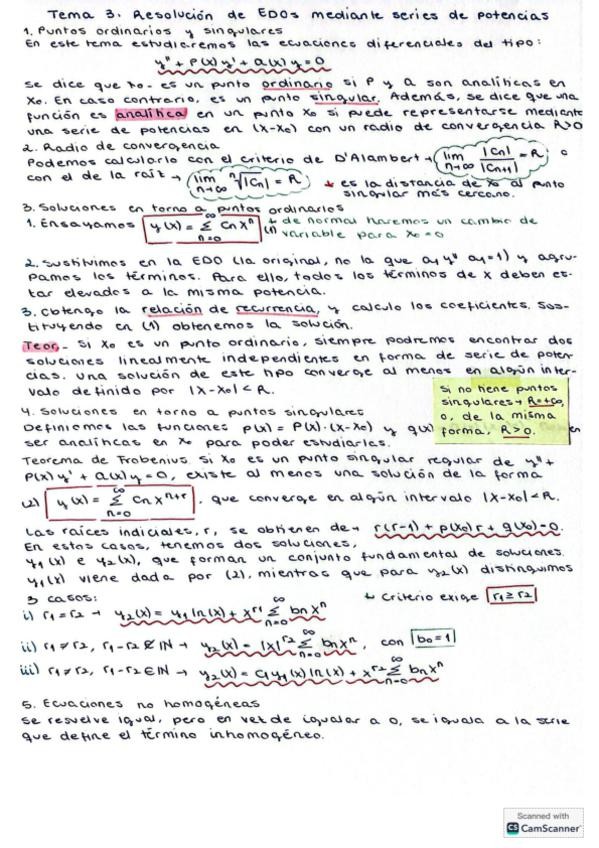 Tema 3. Resolución de EDOs mediante series de potencias
1. Puntos ordinarios y singulares
En este tema estudiaremos las ecuaciones diferenciales del tipo:
y'' + P(x)y' + Q(x)y = 0
Se dice que x₀ es un punto ordinario si P y Q son analíticas en
x₀. En caso contrario, es un punto singular. Además, se dice que una
función es analítica en un punto x₀ si puede representarse mediante
una serie de potencias en (x-x₀) con un radio de convergencia R>0
2. Radio de convergencia
Podemos calcularlo con el criterio de D'Alambert → lim n→∞ |Cn|/|Cn+1| = R o
con el de la raíz → lim n→∞ ⁿ√|Cn| = R * es la distancia de x₀ al punto
singular más cercano.
3. Soluciones en torno a puntos ordinarios
1. Ensayamos y(x) = ∞ Σ n=0 Cn xⁿ (1) * de normal haremos un cambio de
variable para x₀=0
2. Sustituimos en la EDO (la original, no la que a₁y'' a₁=1) y agru-
pamos los términos. Para ello, todos los términos de x deben es-
tar elevados a la misma potencia.
3. Obtengo la relación de recurrencia, y calculo los coeficientes. Sus-
tituyendo en (1) obtenemos la solución.
Teor. - Si x₀ es un punto ordinario, siempre podremos encontrar dos
soluciones linealmente independientes en forma de serie de poten-
cias. Una solución de este tipo converge al menos en algún inter-
valo definido por |x-x₀| < R.
Si no tiene puntos
singulares → R=+∞,
o, de la misma
forma, R>0.
4. Soluciones en torno a puntos singulares
Definimos las funciones p(x) = P(x)·(x-x₀) y q(x) en
ser analíticas en x₀ para poder estudiarlas.
Teorema de Frobenius. Si x₀ es un punto singular regular de y''+
P(x)y' + Q(x)y = 0, existe al menos una solución de la forma
(2) y(x) = ∞ Σ n=0 Cn xⁿ⁺ʳ, que converge en algún intervalo |x-x₀| < R.
Las raíces indiciales, r, se obtienen de → r(r-1) + p(x₀)r + q(x₀) = 0.
En estos casos, tenemos dos soluciones,
y₁(x) e y₂(x), que forman un conjunto fundamental de soluciones.
y₁(x) viene dada por (2), mientras que para y₂(x) distinguimos
3 casos: * Criterio exige r₁ ≥ r₂
i) r₁ = r₂ → y₂(x) = y₁ ln(x) + xʳ¹ ∞ Σ n=0 bn xⁿ
ii) r₁ ≠ r₂, r₁-r₂ ∉ ℕ → y₂(x) = |x|ʳ² ∞ Σ n=0 bn xⁿ, con b₀ = 1
iii) r₁ ≠ r₂, r₁-r₂ ∈ ℕ → y₂(x) = C₁y₁(x) ln(x) + xʳ² ∞ Σ n=0 bn xⁿ
5. Ecuaciones no homogéneas
Se resuelve igual, pero en vez de igualar a 0, se iguala a la serie
que define el término inhomogéneo.
Scanned with
CS CamScanner